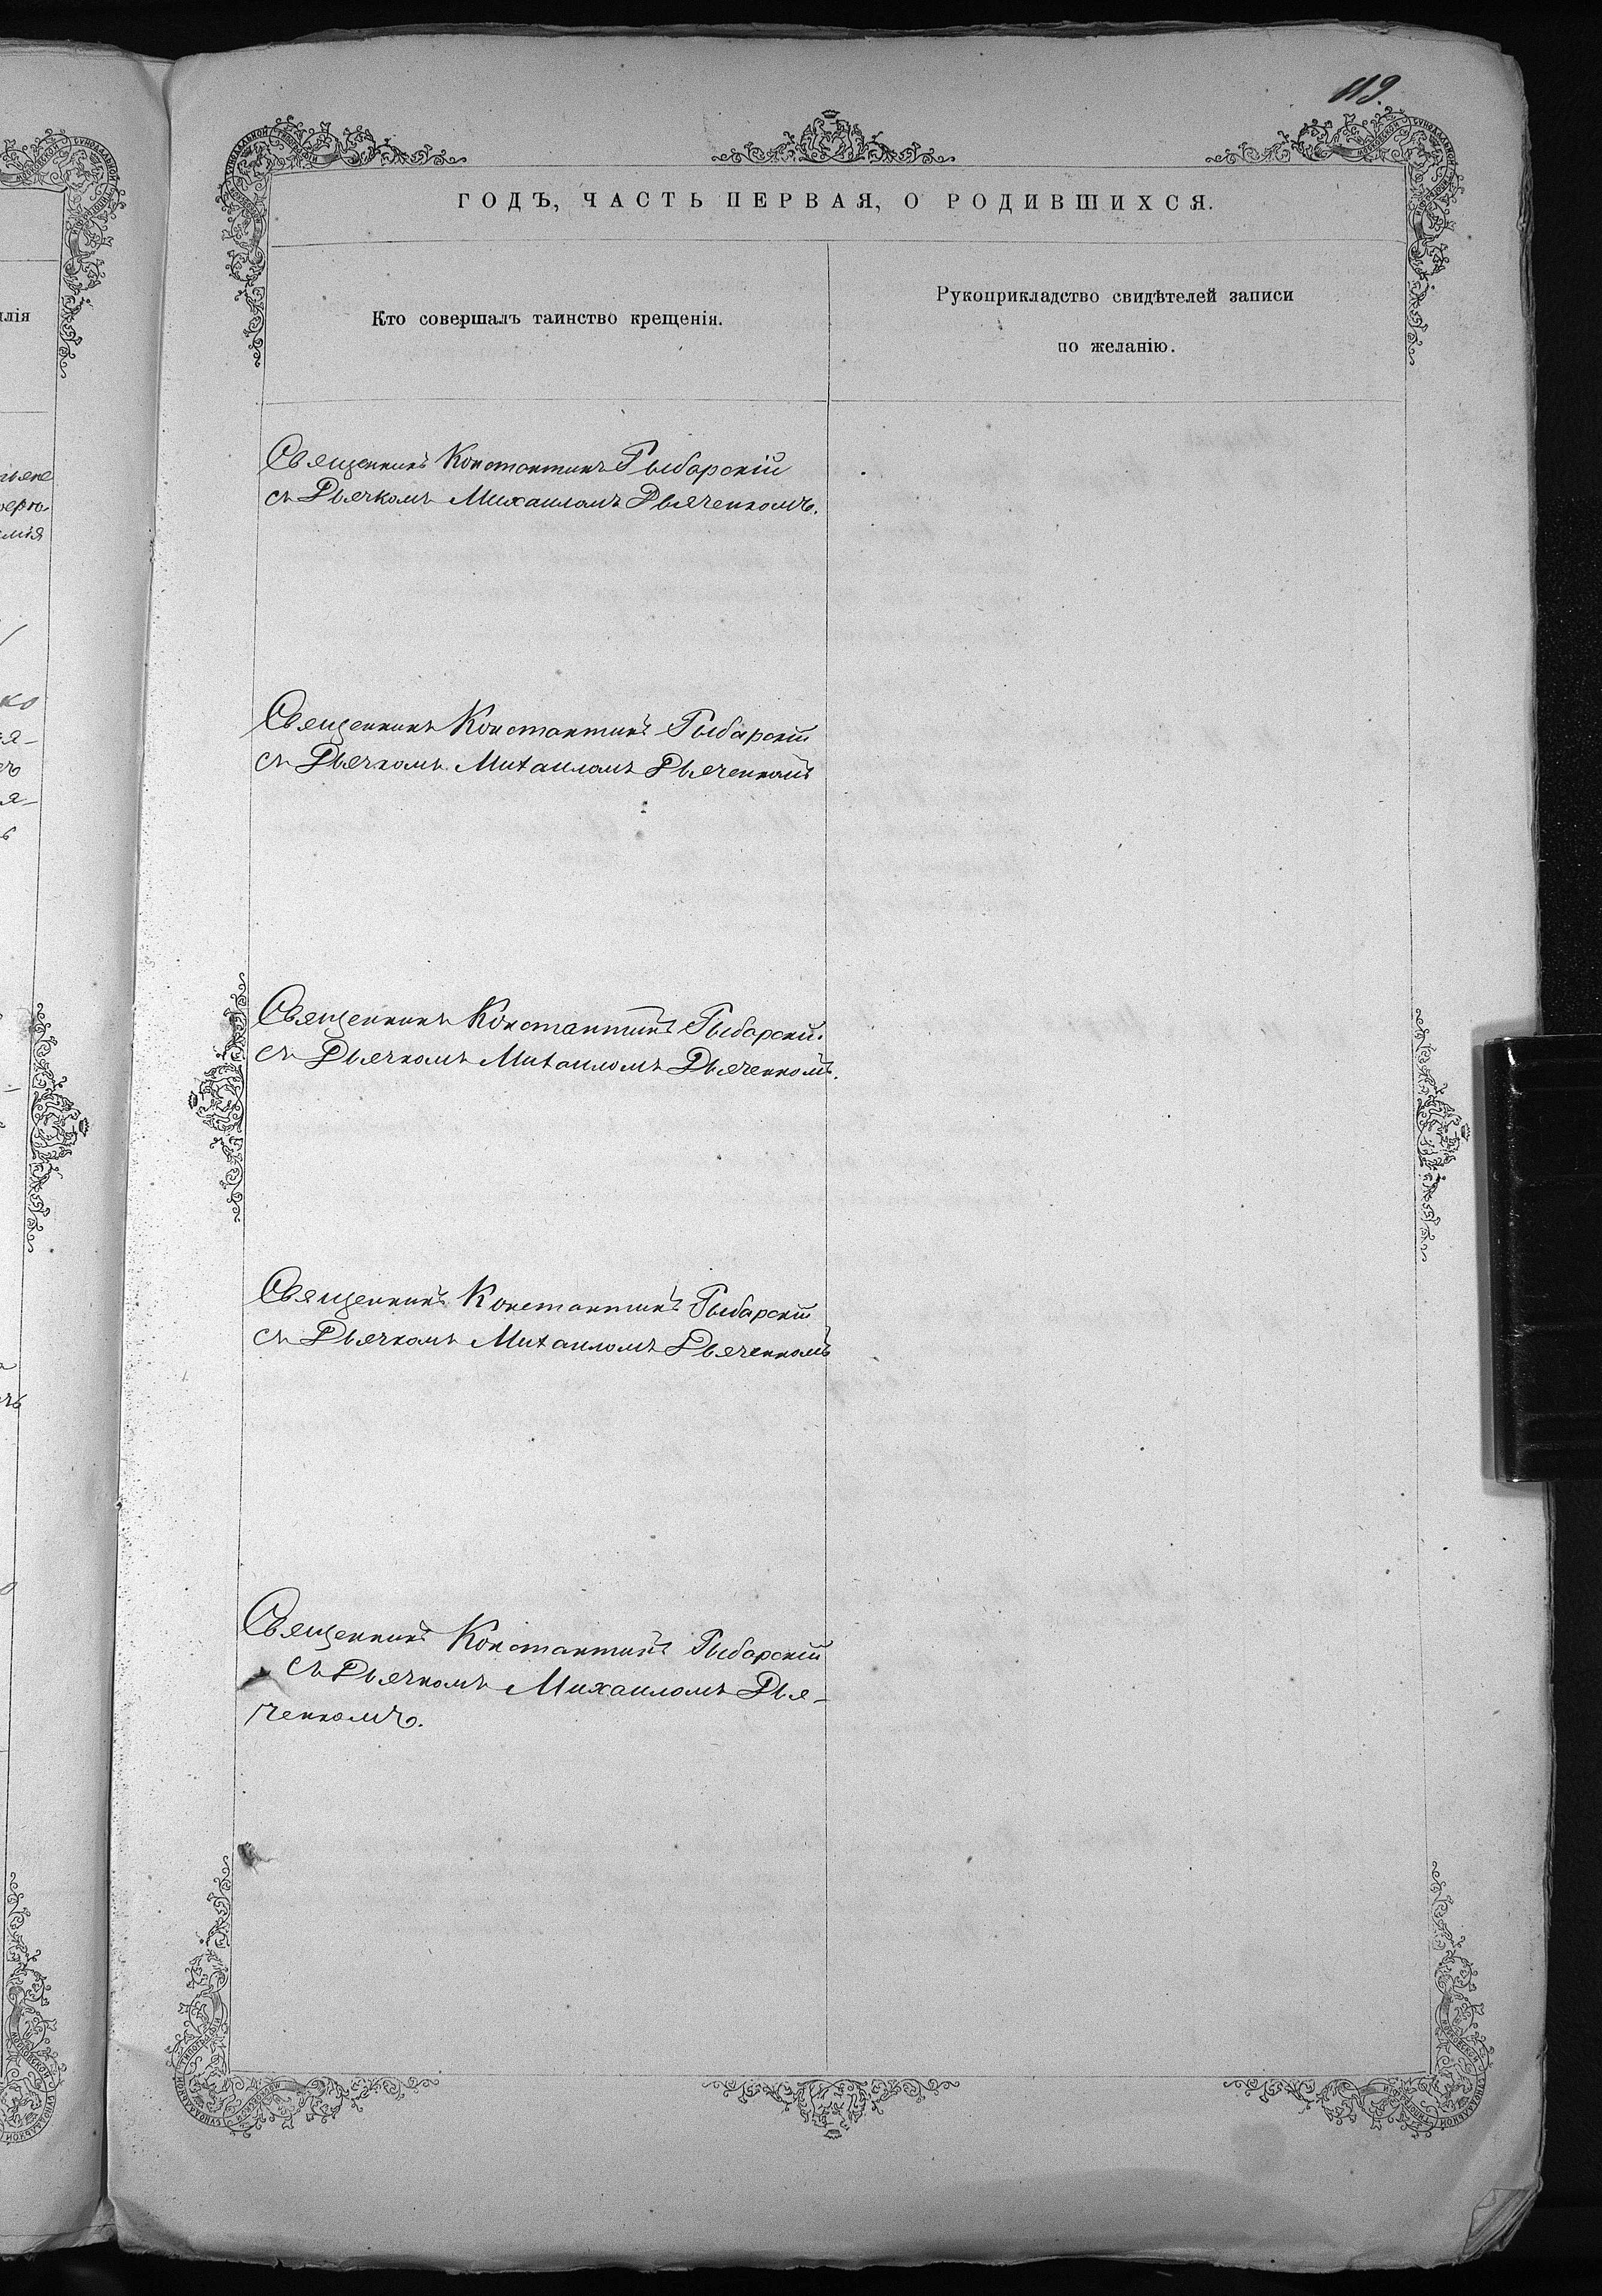 119.
ГОДЪ, ЧАСТЬ ПЕРВАЯ, О РОДИВШИХСЯ.
Кто совершалъ таинство крещенія.
Рукоприкладство свидѣтелей записи
по желанію.
Священникъ Константинъ Рыбарскій
съ Дьячкомъ Михаиломъ Дьяченкомъ.
Священникъ Константинъ Рыбарскій
съ Дьячкомъ Михаиломъ Дьяченкомъ
Священникъ Константинъ Рыбарскій.
съ Дьячкомъ Михаиломъ Дьяченкомъ.
Священникъ Константинъ Рыбарскій
съ Дьячкомъ Михаиломъ Дьяченкомъ
Священникъ Константинъ Рыбарскій
съ Дьячкомъ Михаиломъ Дья-
ченкомъ.